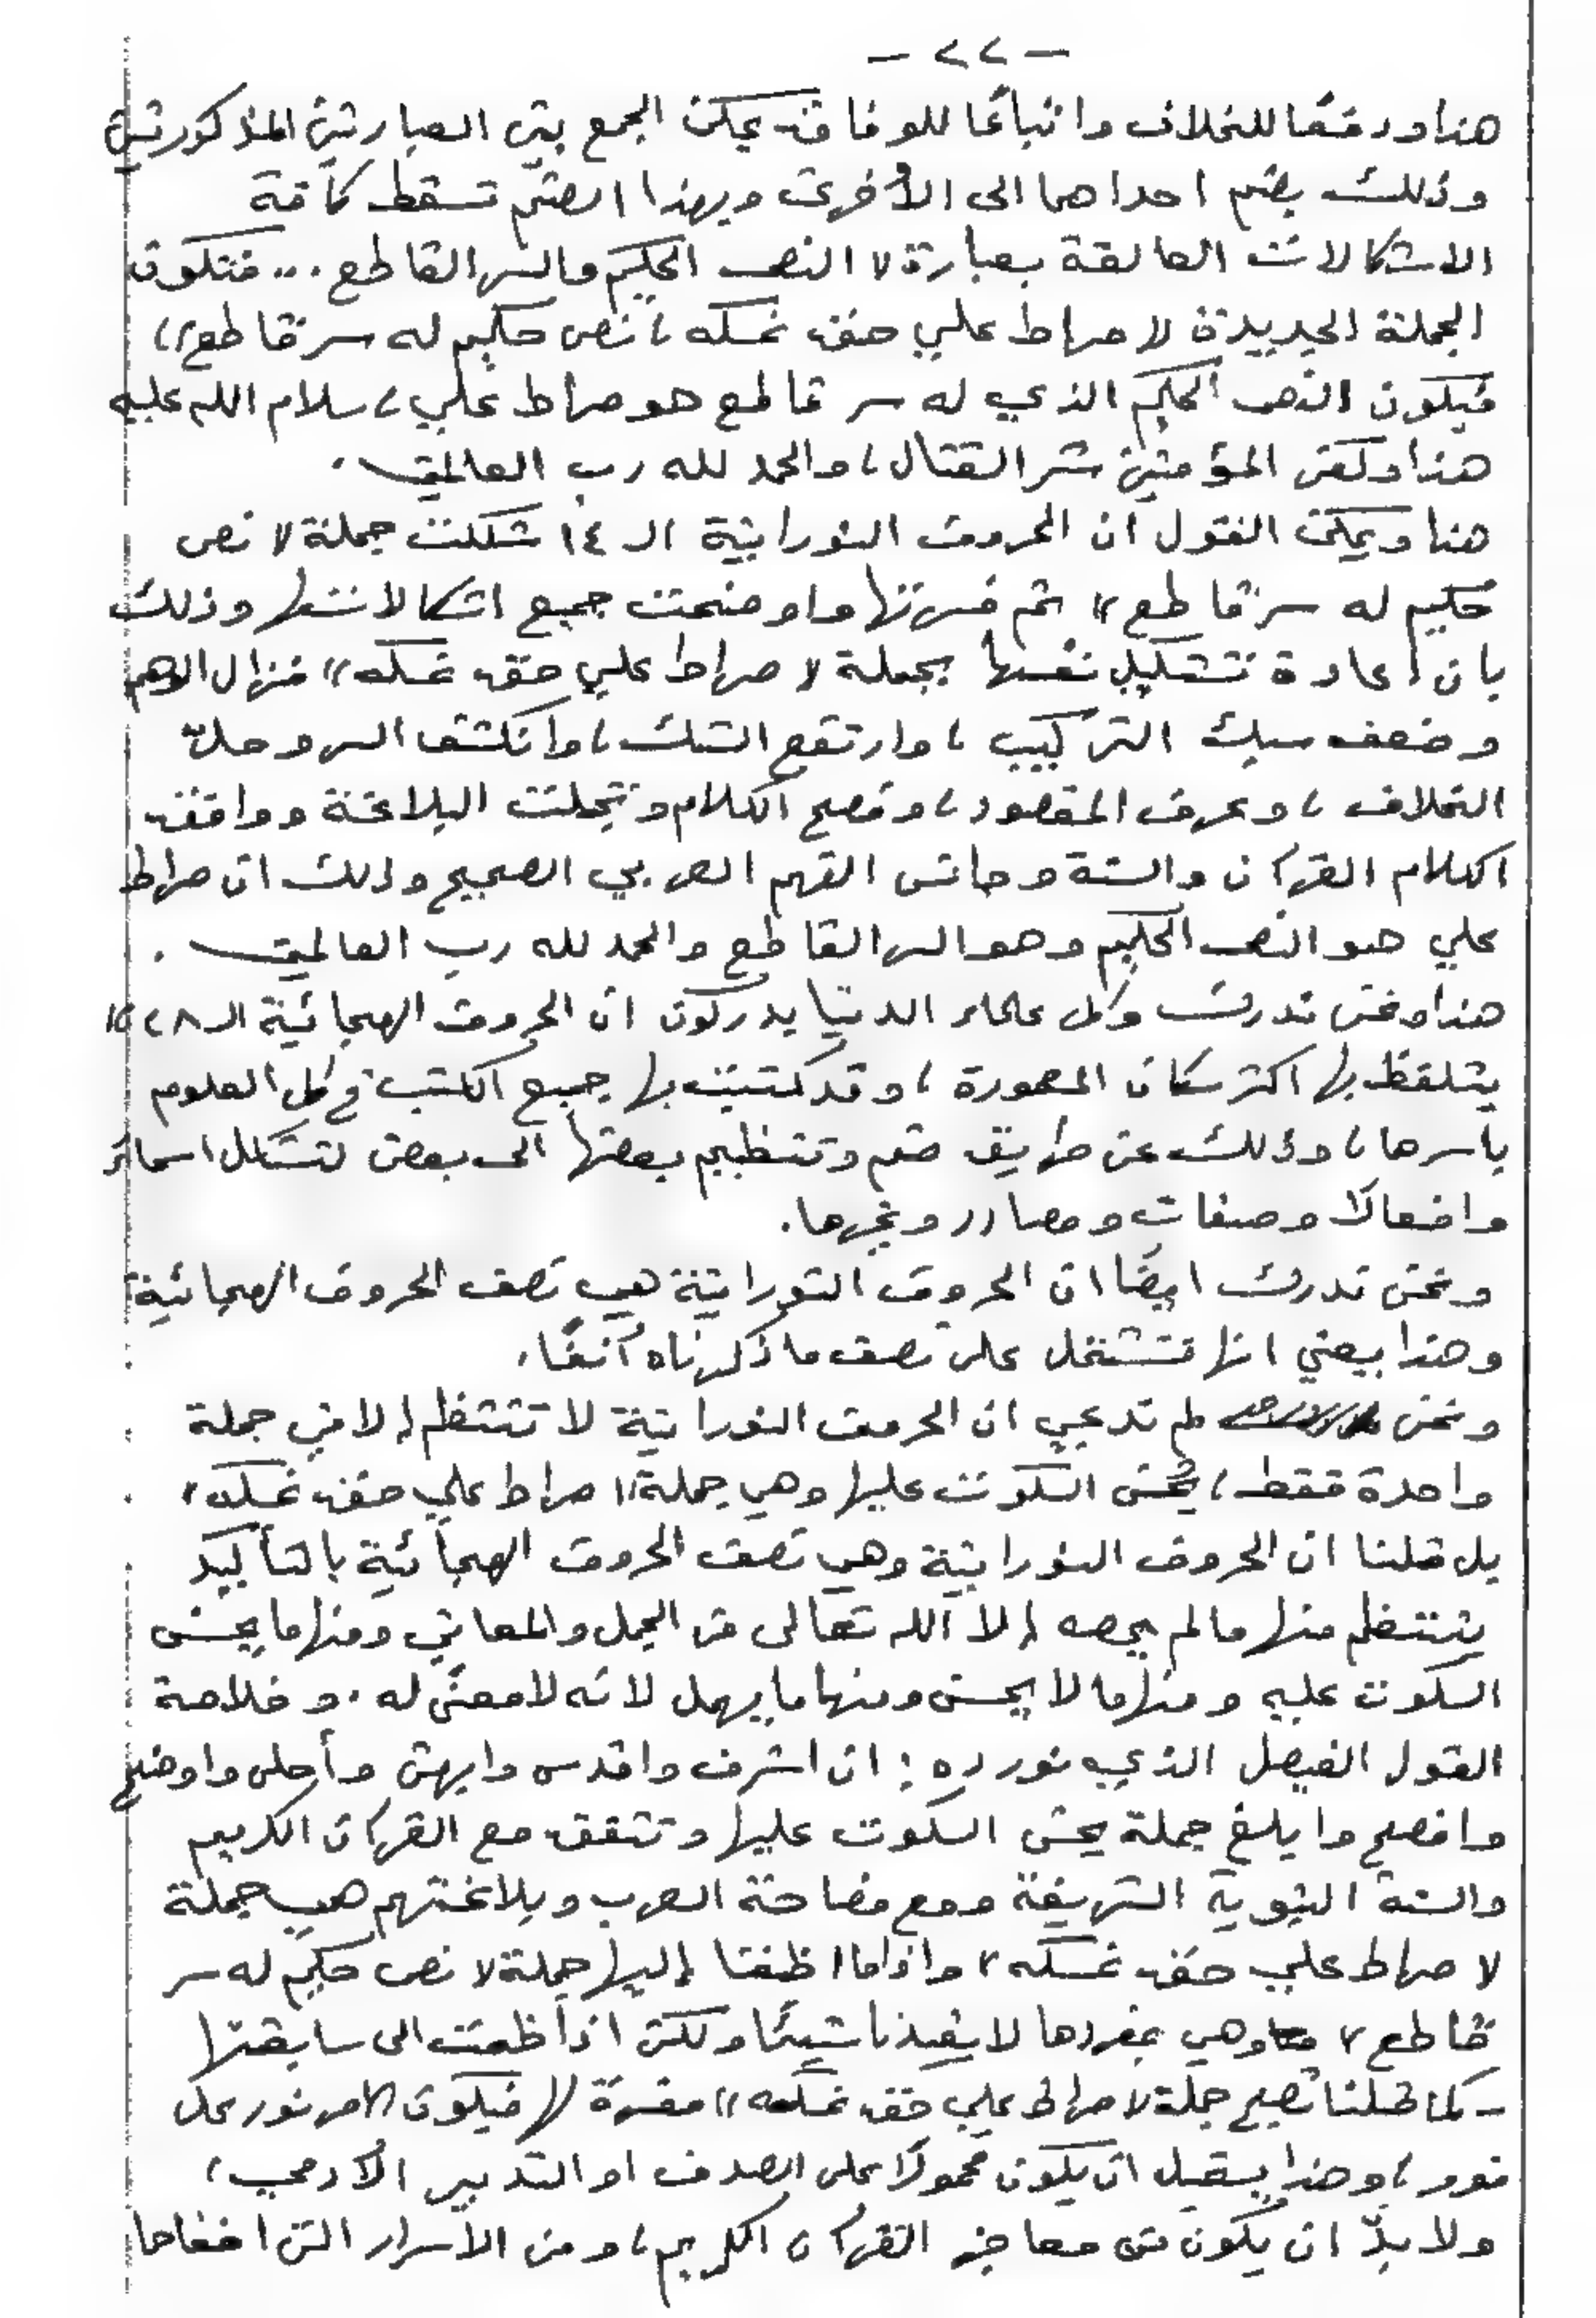 - ٢٢ -
هذا ودفعًا للخلاف واتباعًا للوفاق يمكن الجمع بين العبارتين المذكورتين
وذلك بضم احداهما الى الأخرى وبهذا الضم تسقط كافة
الاشكالات العالقة بعبارة « النص الحكيم والسر القاطع ... فتكون
الجملة الجديدة « صراط علي حق نمسكه ، نص حكيم له سر قاطع »
فيكون النص الحكيم الذي له سر قاطع هو صراط علي ، سلام الله عليه
هذا وكفى المؤمنين شر القتال ، والحمد لله رب العالمين .
هنا ويمكن القول ان الحروف النورانية الـ ١٤ شكلت جملة « نص
حكيم له سر قاطع » ثم فسرتها واوضحت جميع اشكالاتها وذلك
بان إعادة تشكيل نفسها بجملة « صراط علي حق نمسكه » فزال الوهم
وضعف سبك التركيب ، وارتفع الشك ، وانكشف السر وحلّ
الخلاف ، وعرف المقصود ، وفصح الكلام وتجلت البلاغة ووافق
الكلام القرآن والسنة وجانس الفهم العربي الصحيح وذلك ان صراط
علي هو النص الحكيم وهو السر القاطع والحمد لله رب العالمين .
هذا ونحن ندرك وكل علماء الدنيا يدركون ان الحروف الهجائية الـ ٢٨
يتلفظ بها اكثر سكان المعمورة ، وقد كتبت بها جميع الكتب في كل العلوم
باسرها ، وذلك عن طريق ضم وتنظيم بعضها الى بعض لتشكل اسماء
وافعالًا وصفات ومصادر وغيرها .
ونحن ندرك ايضًا ان الحروف النورانية هي نصف الحروف الهجائية
وهذا يعني انها تشتغل على نصف ما ذكرناه آنفًا .
ونحن لم ندعي ان الحروف النورانية لا تنتظم إلا في جملة
واحدة فقط ، يحسن السكوت عليها وهي جملة « صراط علي حق نمسكه »
بل قلنا ان الحروف النورانية وهي نصف الحروف الهجائية بالتأكيد
ينتظم منها مالم يحصه إلا الله تعالى من الجمل والمعاني ومنها ما يحسن
السكوت عليه ومنها ما لا يحسن ومنها ما يهمل لانه لا معنًى له . وخلاصة
القول الفيصل الذي نورده : ان اشرف واقدس وابهى وأحلى واوضح
وافصح وابلغ جملة يحسن السكوت عليها وتتفق مع القرآن الكريم
والسنة النبوية الشريفة ومع فصاحة العرب وبلاغتهم هي جملة
« صراط علي حق نمسكه » واذا ما اظفنا إليها جملة « نص حكيم له سر
قاطع » وهي بمفردها لا يفيدنا شيئًا ولكن اذا ظمت الى سابقتها
- كما قلنا تصبح جملة « صراط علي حق نمسكه » مفسرة لها فيكون الامر نور على
نور ، وهذا يستحيل ان يكون محمولًا على الصدف او التدبير الآدمي ،
ولا بدّ ان يكون من معاجز القرآن الكريم ، ومن الأسرار التي اخفاها